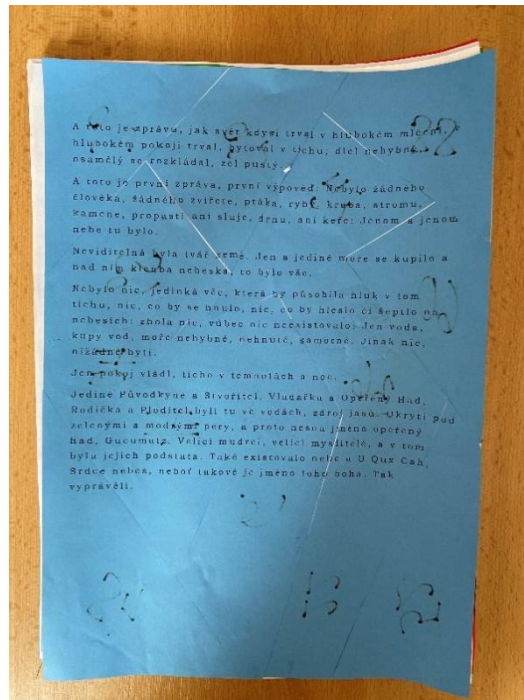 A toto je zpráva, jak svět kdysi trval v hlubokém mlčení, v
hlubokém pokoji trval, bytoval v tichu, dlel nehybně
osamělý se rozkládal, zel pustý.
A toto je první zpráva, první výpověď: Nebylo žádného
člověka, žádného zvířete, ptáka, ryby, kraba, stromu,
kamene, propasti ani sluje, drnu, ani keře: Jenom a jenom
nebe tu bylo.
Neviditelná byla tvář země. Jen a jedině moře se kupilo a
nad ním klenba nebeská, to bylo vše.
Nebylo nic, jedinká věc, která by působila hluk v tom
tichu, nic, co by se hnulo, nic, co by hleslo či šeptlo na
nebesích: zhola nic, vůbec nic neexistovalo: Jen voda,
kupy vod, moře nehybné, nehnuté, samotné. Jinak nic,
nižádné bytí.
Jen pokoj vládl, ticho v temnotách a noc.
Jedině Původkyně a Stvořitel, Vladařka a Opeřený Had,
Rodička a Ploditel byli tu ve vodách, zdroj jasu. Ukryti pod
zelenými a modrými pery, a proto nesou jméno opeřený
had, Gucumatz. Velicí mudrci, velicí myslitelé, a v tom
byla jejich podstata. Také existovalo nebe a U Qux Cah,
Srdce nebes, neboť takové je jméno toho boha. Tak
vyprávěli.